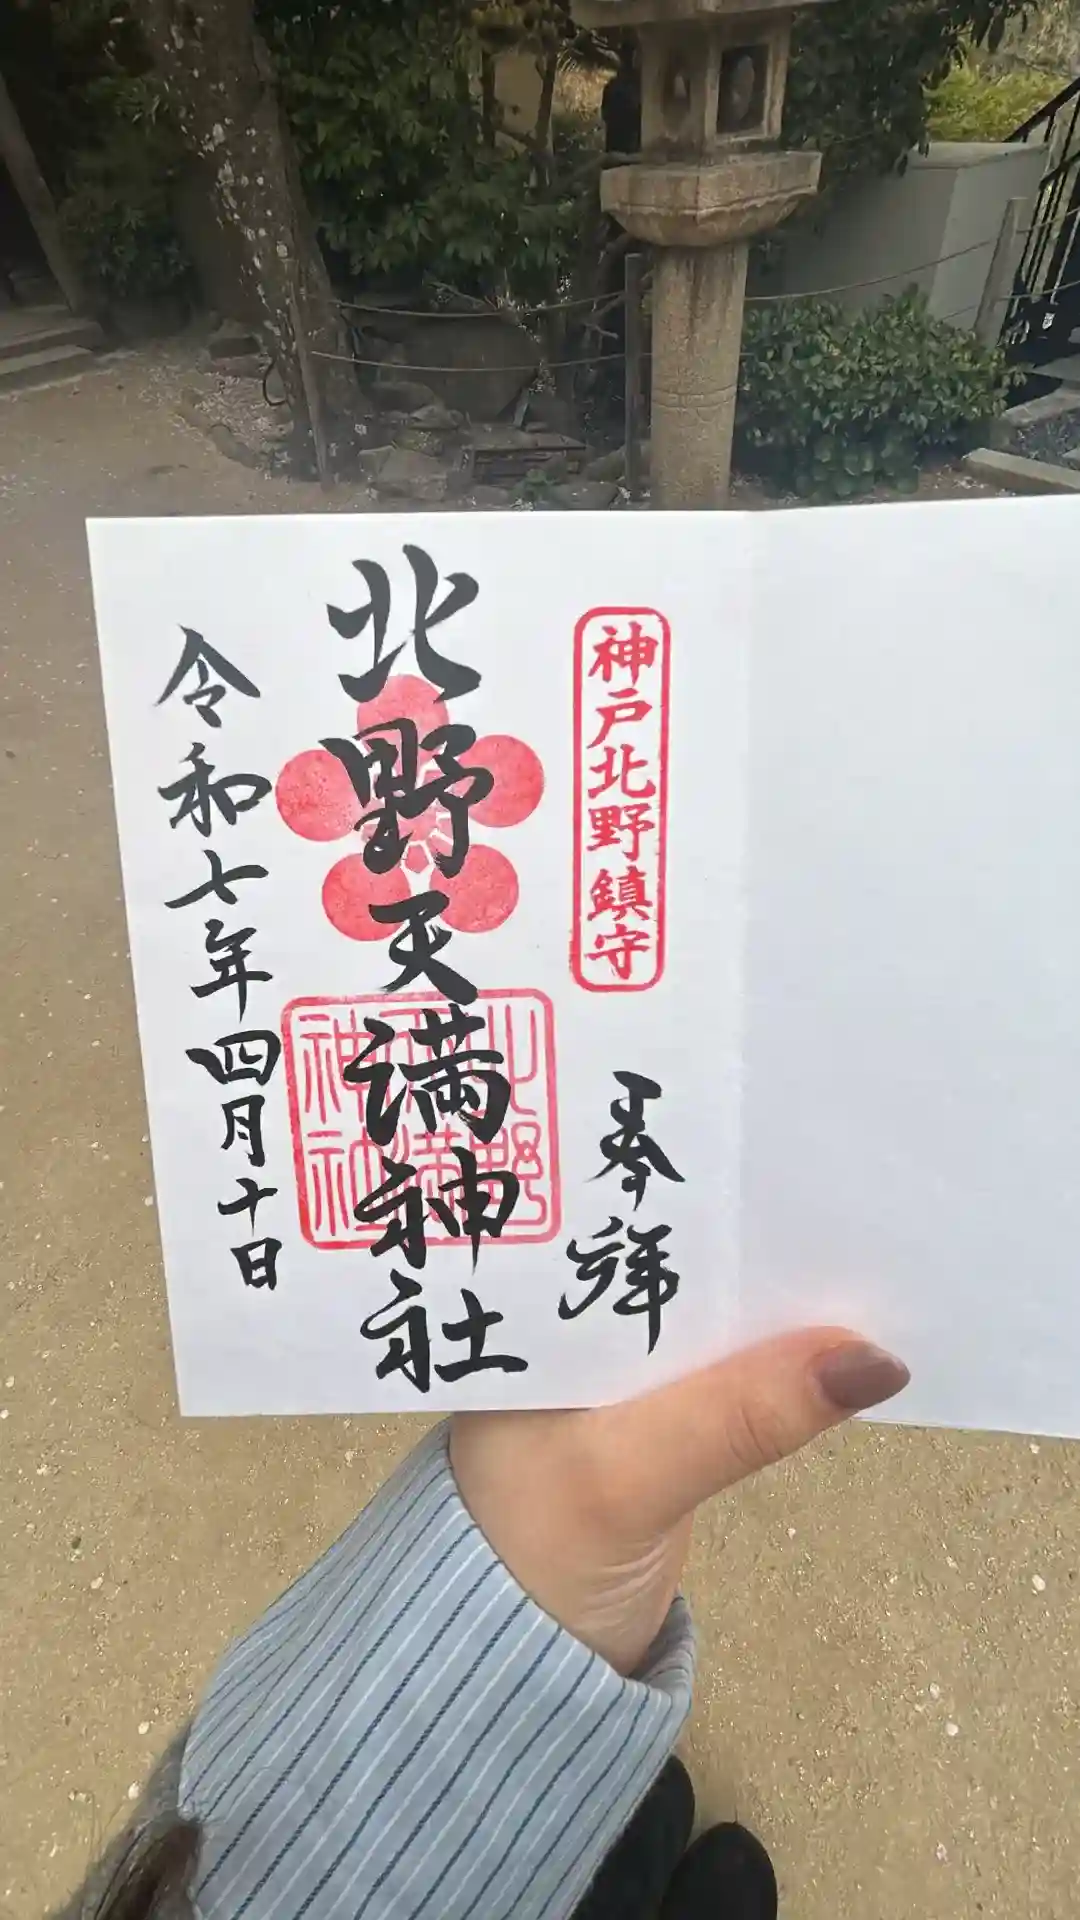 神戸北野鎮守
奉拝
北野天満神社
北野天満神社
令和七年四月十日